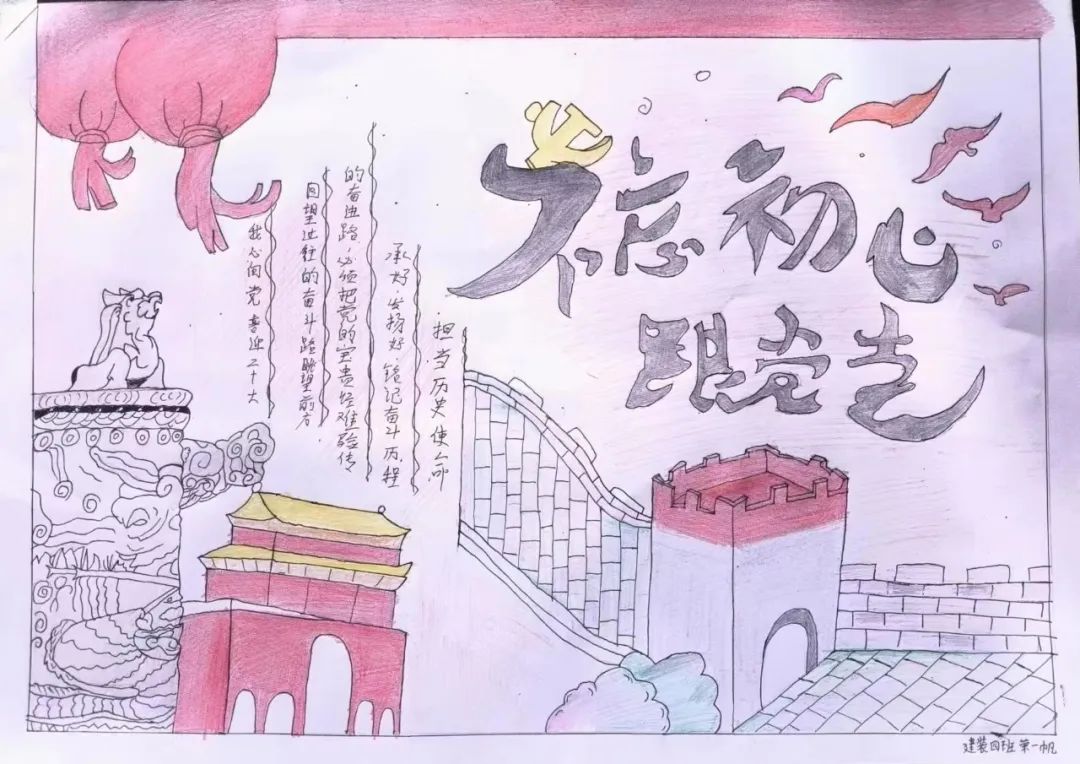 不忘初心
跟党走
我心向党 喜迎二十大
回望过往的奋斗路眺望前方
的奋进路,必须把党的宝贵经难验传
承好、发扬好,铭记奋斗历程
担当历史使命
建装四班 第一帆